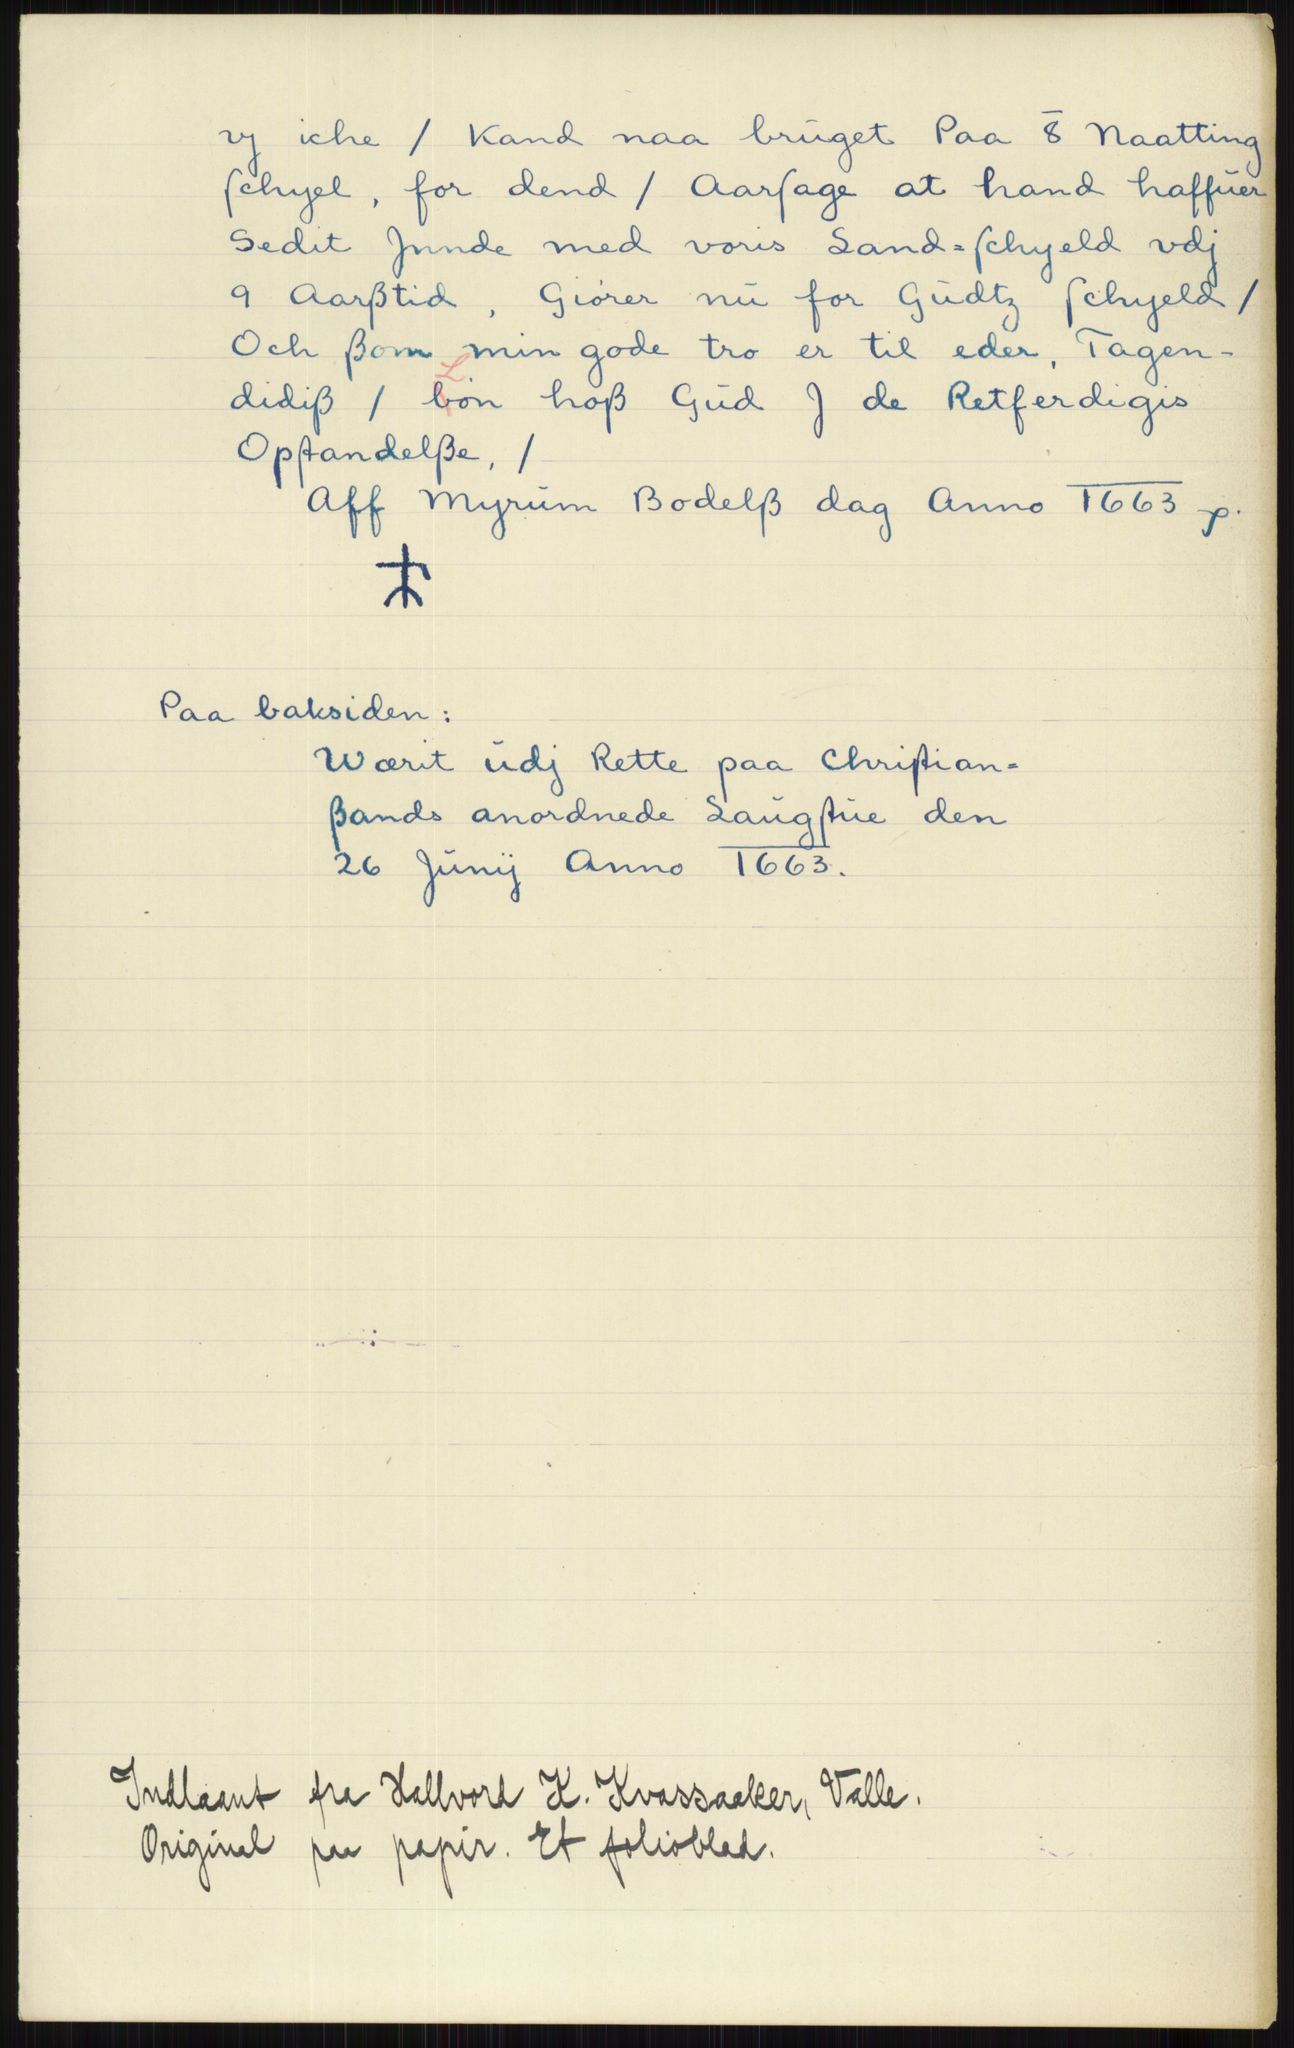 vj iche / Kand naa brŭget Paa 8̄ Naatting
ſchyel, for dend / Aarſage at hand haffŭer
Sedit Jnnde med voris Land=ſchyeld vdj
9 Aarßtid, Giórer nŭ for Gŭdtz ſchyeld /
Och ßom min gode tro er til eder, Tagen-
didiß / Lón hoß Gŭd J de Retferdigis
Opſtandelße, /
Aff Myrŭm Bodelß dag Anno 1663 p.
Paa baksiden:
Wærit ŭdj Rette paa Chriſtian=
ßands anordnede Laŭgſtŭe den
26 Jŭnij Anno 1663.
Indlaant fra Hallvord K. Kvassaaker, Valle.
Original paa papir. Et folioblad.